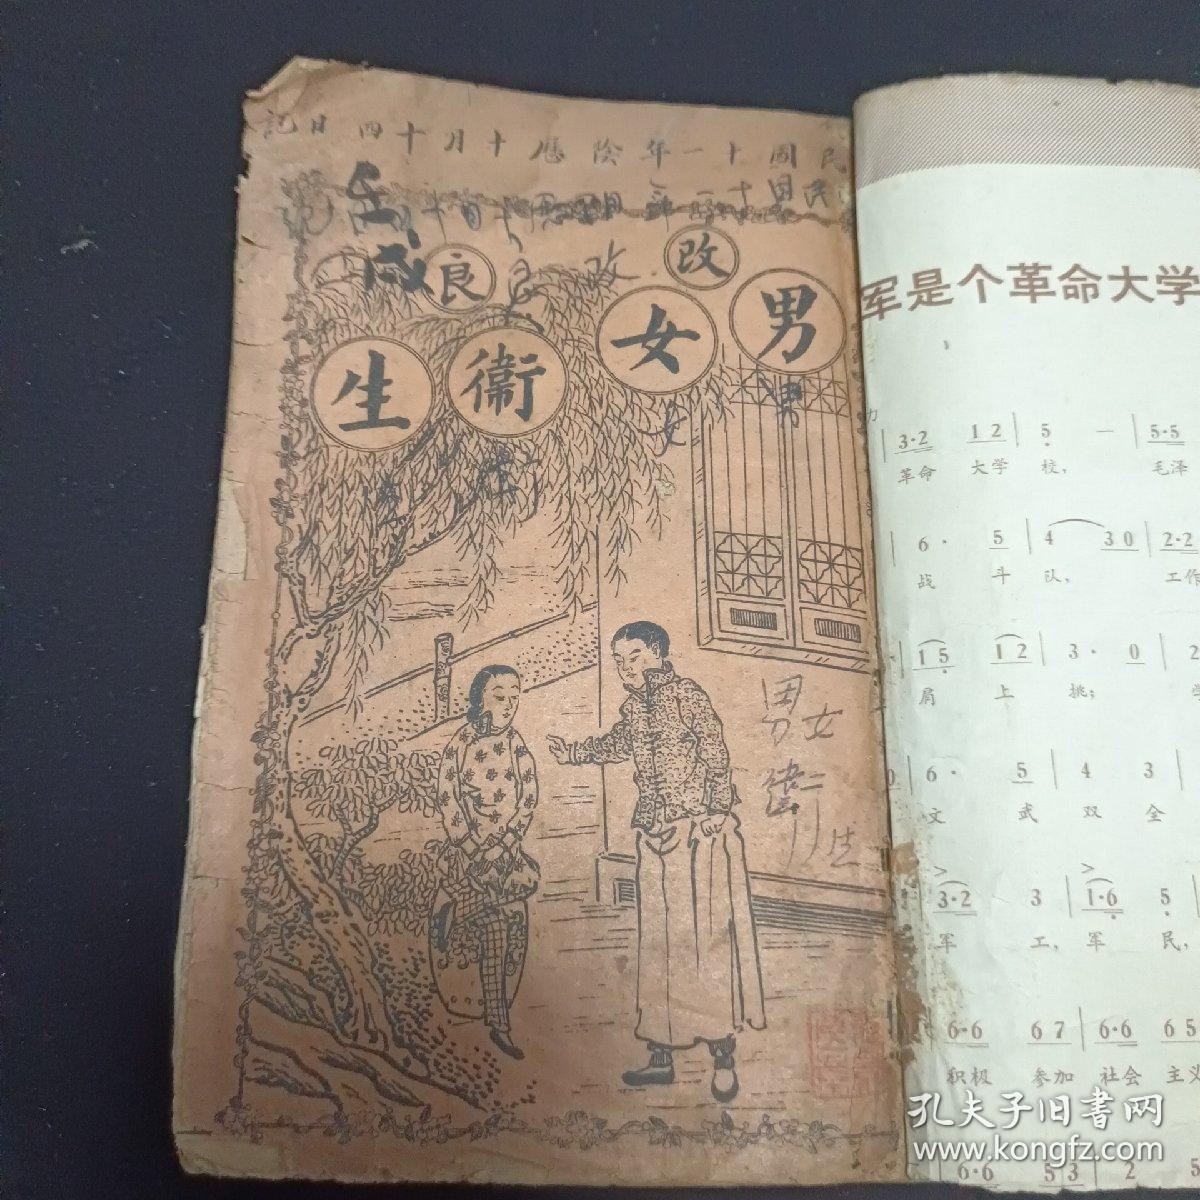 民國十一年陰厯十月十四日記
民國十一年
壬
戌
改良
男女衛生
改良
男女
衛生
男女
衛生
军是个革命大学
3·2 1 2 5 — 5·5
革命 大学 校， 毛泽
6· 5 4 3 0 2·2
战 斗 队， 工作
1 5 1 2 3· 0 2
肩 上 挑；
6· 5 4 3
文 武 双 全
3·2 3 1·6 5
军 工，军 民，
6·6 6 7 6·6 6 5
积极 参加 社会 主义
6·6 5 3 2 5
孔夫子旧书网
www.kongfz.com